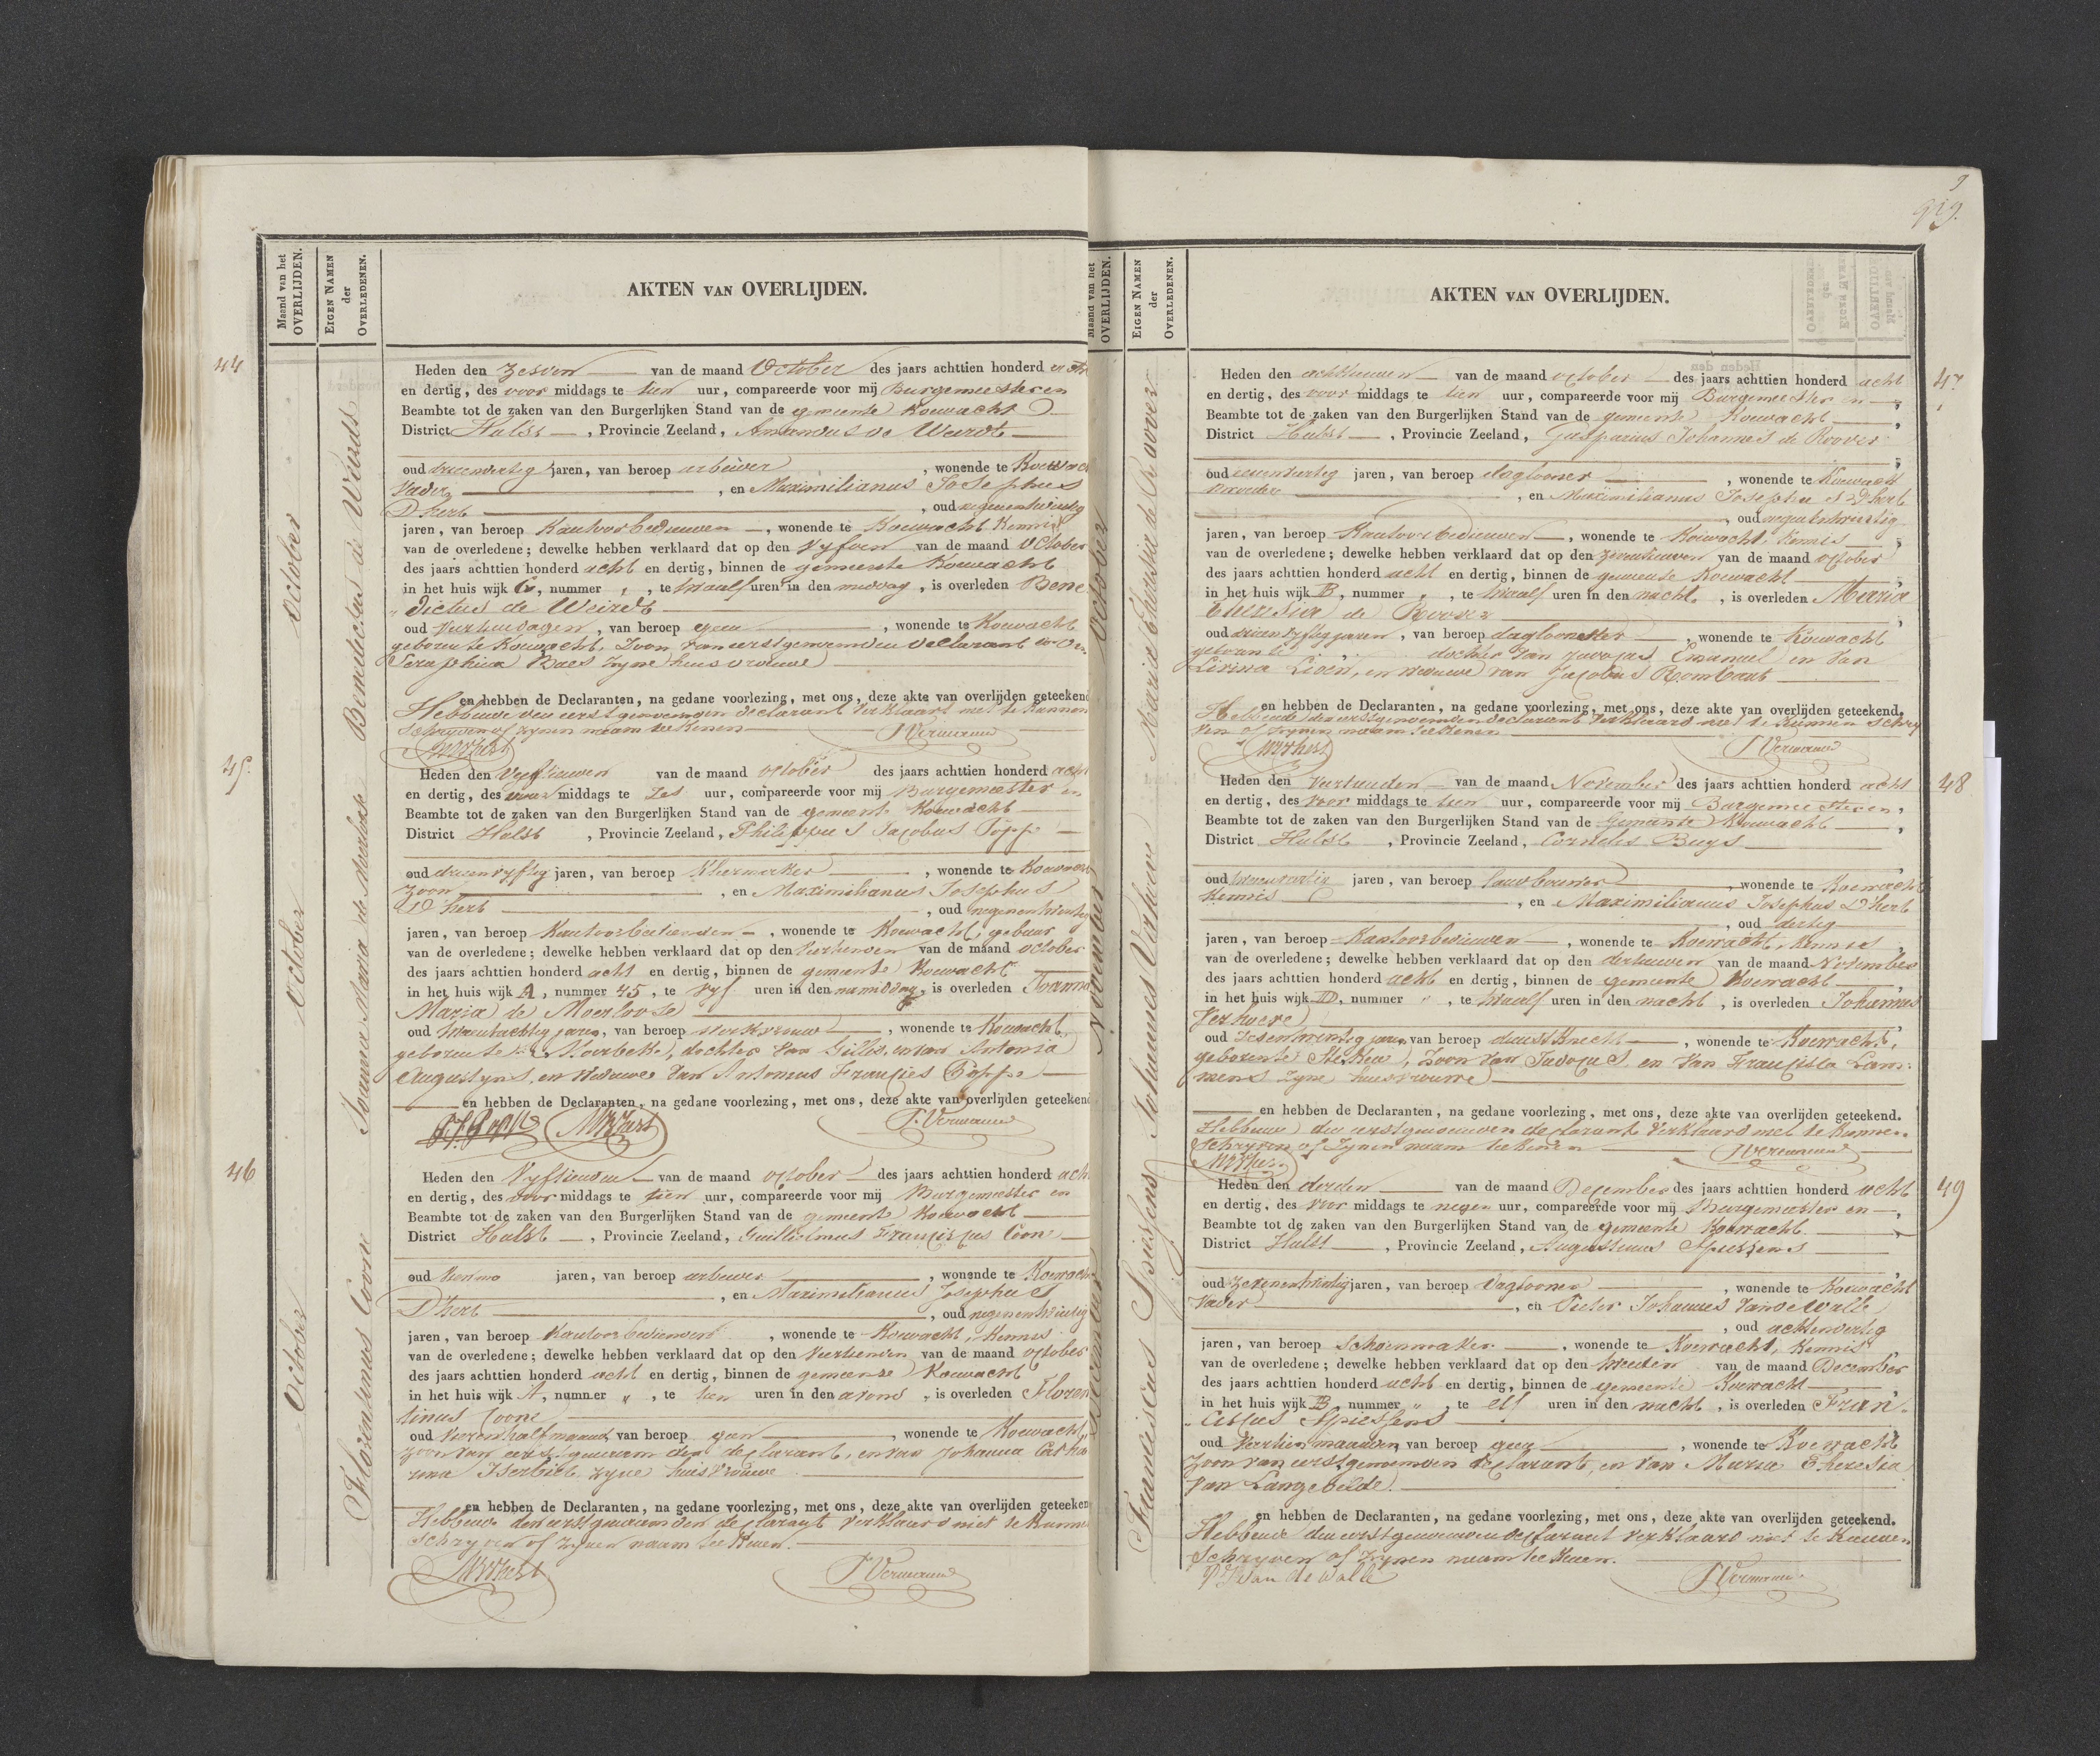 Maand van het
OVERLIJDEN.
EIGEN NAMEN
der
OVERLEDENEN.
AKTEN VAN OVERLIJDEN.
44
October
Benedictus de Weirdt
Heden den Zesden van de maand October des jaars achttien honderd acht
en dertig, des voor middags te tien uur, compareerde voor mij Burgemeester en
Beambte tot de zaken van den Burgerlijken Stand van de gemeente Koewacht
District Hulst, Provincie Zeeland, Amandus de Weirdt
oud drieendertig jaren, van beroep arbeider, wonende te Koewacht
Vader, en Maximilianus Josephus
D'hert, oud negenentwintig
jaren, van beroep Kantoorbediende, wonende te Koewacht Kennis
van de overledene; dewelke hebben verklaard dat op den vyfden van de maand October
des jaars achttien honderd acht en dertig, binnen de gemeente Koewacht
in het huis wijk C, nummer , te twaalf uren in den middag, is overleden Bene
dictus de Weirdt
oud veertien dagen, van beroep geen, wonende te Koewacht
geboren te Koewacht, Zoon van eerstgenoemden declarant en van
Seraphina Baes zyne huisvrouwe
en hebben de Declaranten, na gedane voorlezing, met ons, deze akte van overlijden geteekend
Hebbende den eerstgenoemden declarant verklaart niet te kunnen
schryven of zynen naam teekenen
MJD'hert JVermeeren
45.
October
Joanna Maria de Moerloose
Heden den Vyftienden van de maand october des jaars achttien honderd acht
en dertig, des voor middags te zes uur, compareerde voor mij Burgemeester en
Beambte tot de zaken van den Burgerlijken Stand van de gemeente Koewacht
District Hulst, Provincie Zeeland, Philippus Jacobus Poppe
oud drieenvyftig jaren, van beroep Kleermaker, wonende te Koewacht
Zoon, en Maximilianus Josephus
D'hert, oud negenentwintig
jaren, van beroep Kantoorbedienden, wonende te Koewacht, gebuur
van de overledene; dewelke hebben verklaard dat op den veertienden van de maand october
des jaars achttien honderd acht en dertig, binnen de gemeente Koewacht
in het huis wijk A, nummer 45, te vyf uren in den namiddag, is overleden Joanna
Maria de Moerloose
oud tweentachtig jaren, van beroep werkvrouw, wonende te Koewacht,
geboren te Moerbeke, dochter van Gillis, en van Antonia
Augustyns, en weduwe van Antonius Francies Poppe
en hebben de Declaranten, na gedane voorlezing, met ons, deze akte van overlijden geteekend
P.J. Poppe MJD'hert J.Vermeeren
46
October
Florentinus Coone
Heden den Vyftienden van de maand october des jaars achttien honderd acht
en dertig, des voor middags te tien uur, compareerde voor mij Burgemeester en
Beambte tot de zaken van den Burgerlijken Stand van de gemeente Koewacht
District Hulst, Provincie Zeeland, Guillielmus Franciscus Coone
oud jaren, van beroep arbeider, wonende te Koewacht
, en Maximilianus Josephus
D'hert, oud negenentwintig
jaren, van beroep Kantoorbedienden, wonende te Koewacht, Kennis
van de overledene; dewelke hebben verklaard dat op den veertienden van de maand october
des jaars achttien honderd acht en dertig, binnen de gemeente Koewacht
in het huis wijk A, nummer " , te tien uren in den avond, is overleden Floren
tinus Coone
oud vier en half maand van beroep geen, wonende te Koewacht,
zoon van eerstgenoemden declarant, en van Johanna Catha
rina zyne huisvrouwe
en hebben de Declaranten, na gedane voorlezing, met ons, deze akte van overlijden geteekend
Hebbende den eerstgenoemden declarant verklaard niet te kunnen
schryven of zynen naam teekenen.
MJD'hert JVermeeren
9
Maand van het
OVERLIJDEN.
EIGEN NAMEN
der
OVERLEDENEN.
AKTEN VAN OVERLIJDEN.
47
October
Maria Theresia de Roover
Heden den achttienden van de maand october des jaars achttien honderd acht
en dertig, des voor middags te tien uur, compareerde voor mij Burgemeester en
Beambte tot de zaken van den Burgerlijken Stand van de gemeente Koewacht
District Hulst, Provincie Zeeland, Gasparus Johannes de Roover
oud jaren, van beroep daglooner, wonende te Koewacht
Broeder, en Maximilianus Josephus D'hert
, oud negenentwintig
jaren, van beroep Kantoorbedienden, wonende te Koewacht, Kennis
van de overledene; dewelke hebben verklaard dat op den zeventienden van de maand october
des jaars achttien honderd acht en dertig, binnen de gemeente Koewacht
in het huis wijk B, nummer , te twaalf uren in den nacht, is overleden Maria
Theresia de Roover
oud drieenvyftig jaren, van beroep dagloonster, wonende te Koewacht
geboren te dochter van Judocus Emanuel en van
Livina Lison, en weduwe van Jacobus Rombaut
en hebben de Declaranten, na gedane voorlezing, met ons, deze akte van overlijden geteekend.
Hebbende den eerstgenoemden declarant verklaard niet te kunnen schry
ven of zynen naam teekenen
MJD'hert JVermeeren
48
November
Johannes Verhuere
Heden den Veertienden van de maand November des jaars achttien honderd acht
en dertig, des voor middags te tien uur, compareerde voor mij Burgemeester en,
Beambte tot de zaken van den Burgerlijken Stand van de gemeente Koewacht
District Hulst, Provincie Zeeland, Cornelis Buys
oud jaren, van beroep landbouwer, wonende te Koewacht
Kennis, en Maximilianus Josephus D'hert
, oud dertig
jaren, van beroep Kantoorbedienden, wonende te Koewacht, Kennis
van de overledene; dewelke hebben verklaard dat op den dertienden van de maand November
des jaars achttien honderd acht en dertig, binnen de gemeente Koewacht
in het huis wijk D, nummer " , te twaalf uren in den nacht, is overleden Johannes
Verhuere
oud zesentwintig jaren van beroep dienstknecht, wonende te Koewacht,
geboren te Stekene, Zoon van Judocus, en van Francisca Lam=
mens zyne huisvrouwe
en hebben de Declaranten, na gedane voorlezing, met ons, deze akte van overlijden geteekend.
Hebbende den eerstgenoemden declarant verklaard niet te kunnen
schryven of zynen naam teekenen
MJD'hert JVermeeren
49
December
Franciscus Spiessens
Heden den derden van de maand December des jaars achttien honderd acht
en dertig, des voor middags te negen uur, compareerde voor mij Burgemeester en
Beambte tot de zaken van den Burgerlijken Stand van de gemeente Koewacht
District Hulst, Provincie Zeeland, Augustinus Spiessens
oud zevenentwintig jaren, van beroep Daglooner, wonende te Koewacht
Vader, en Pieter Johannes Van de Walle
, oud achtenveertig
jaren, van beroep Schoenmaker, wonende te Koewacht, Kennis
van de overledene; dewelke hebben verklaard dat op den tweeden van de maand December
des jaars achttien honderd acht en dertig, binnen de gemeente Koewacht
in het huis wijk B nummer " , te elf uren in den nacht, is overleden Fran=
ciscus Spiessens
oud Veertien maanden, van beroep geen, wonende te Koewacht
Zoon van eerstgenoemden declarant, en van Maria Theresia
van Langebilde.
en hebben de Declaranten, na gedane voorlezing, met ons, deze akte van overlijden geteekend.
Hebbende den eerstgenoemden declarant verklaard niet te kunnen
schryven of zynen naam teekenen.
P J Van de Walle JVermeeren